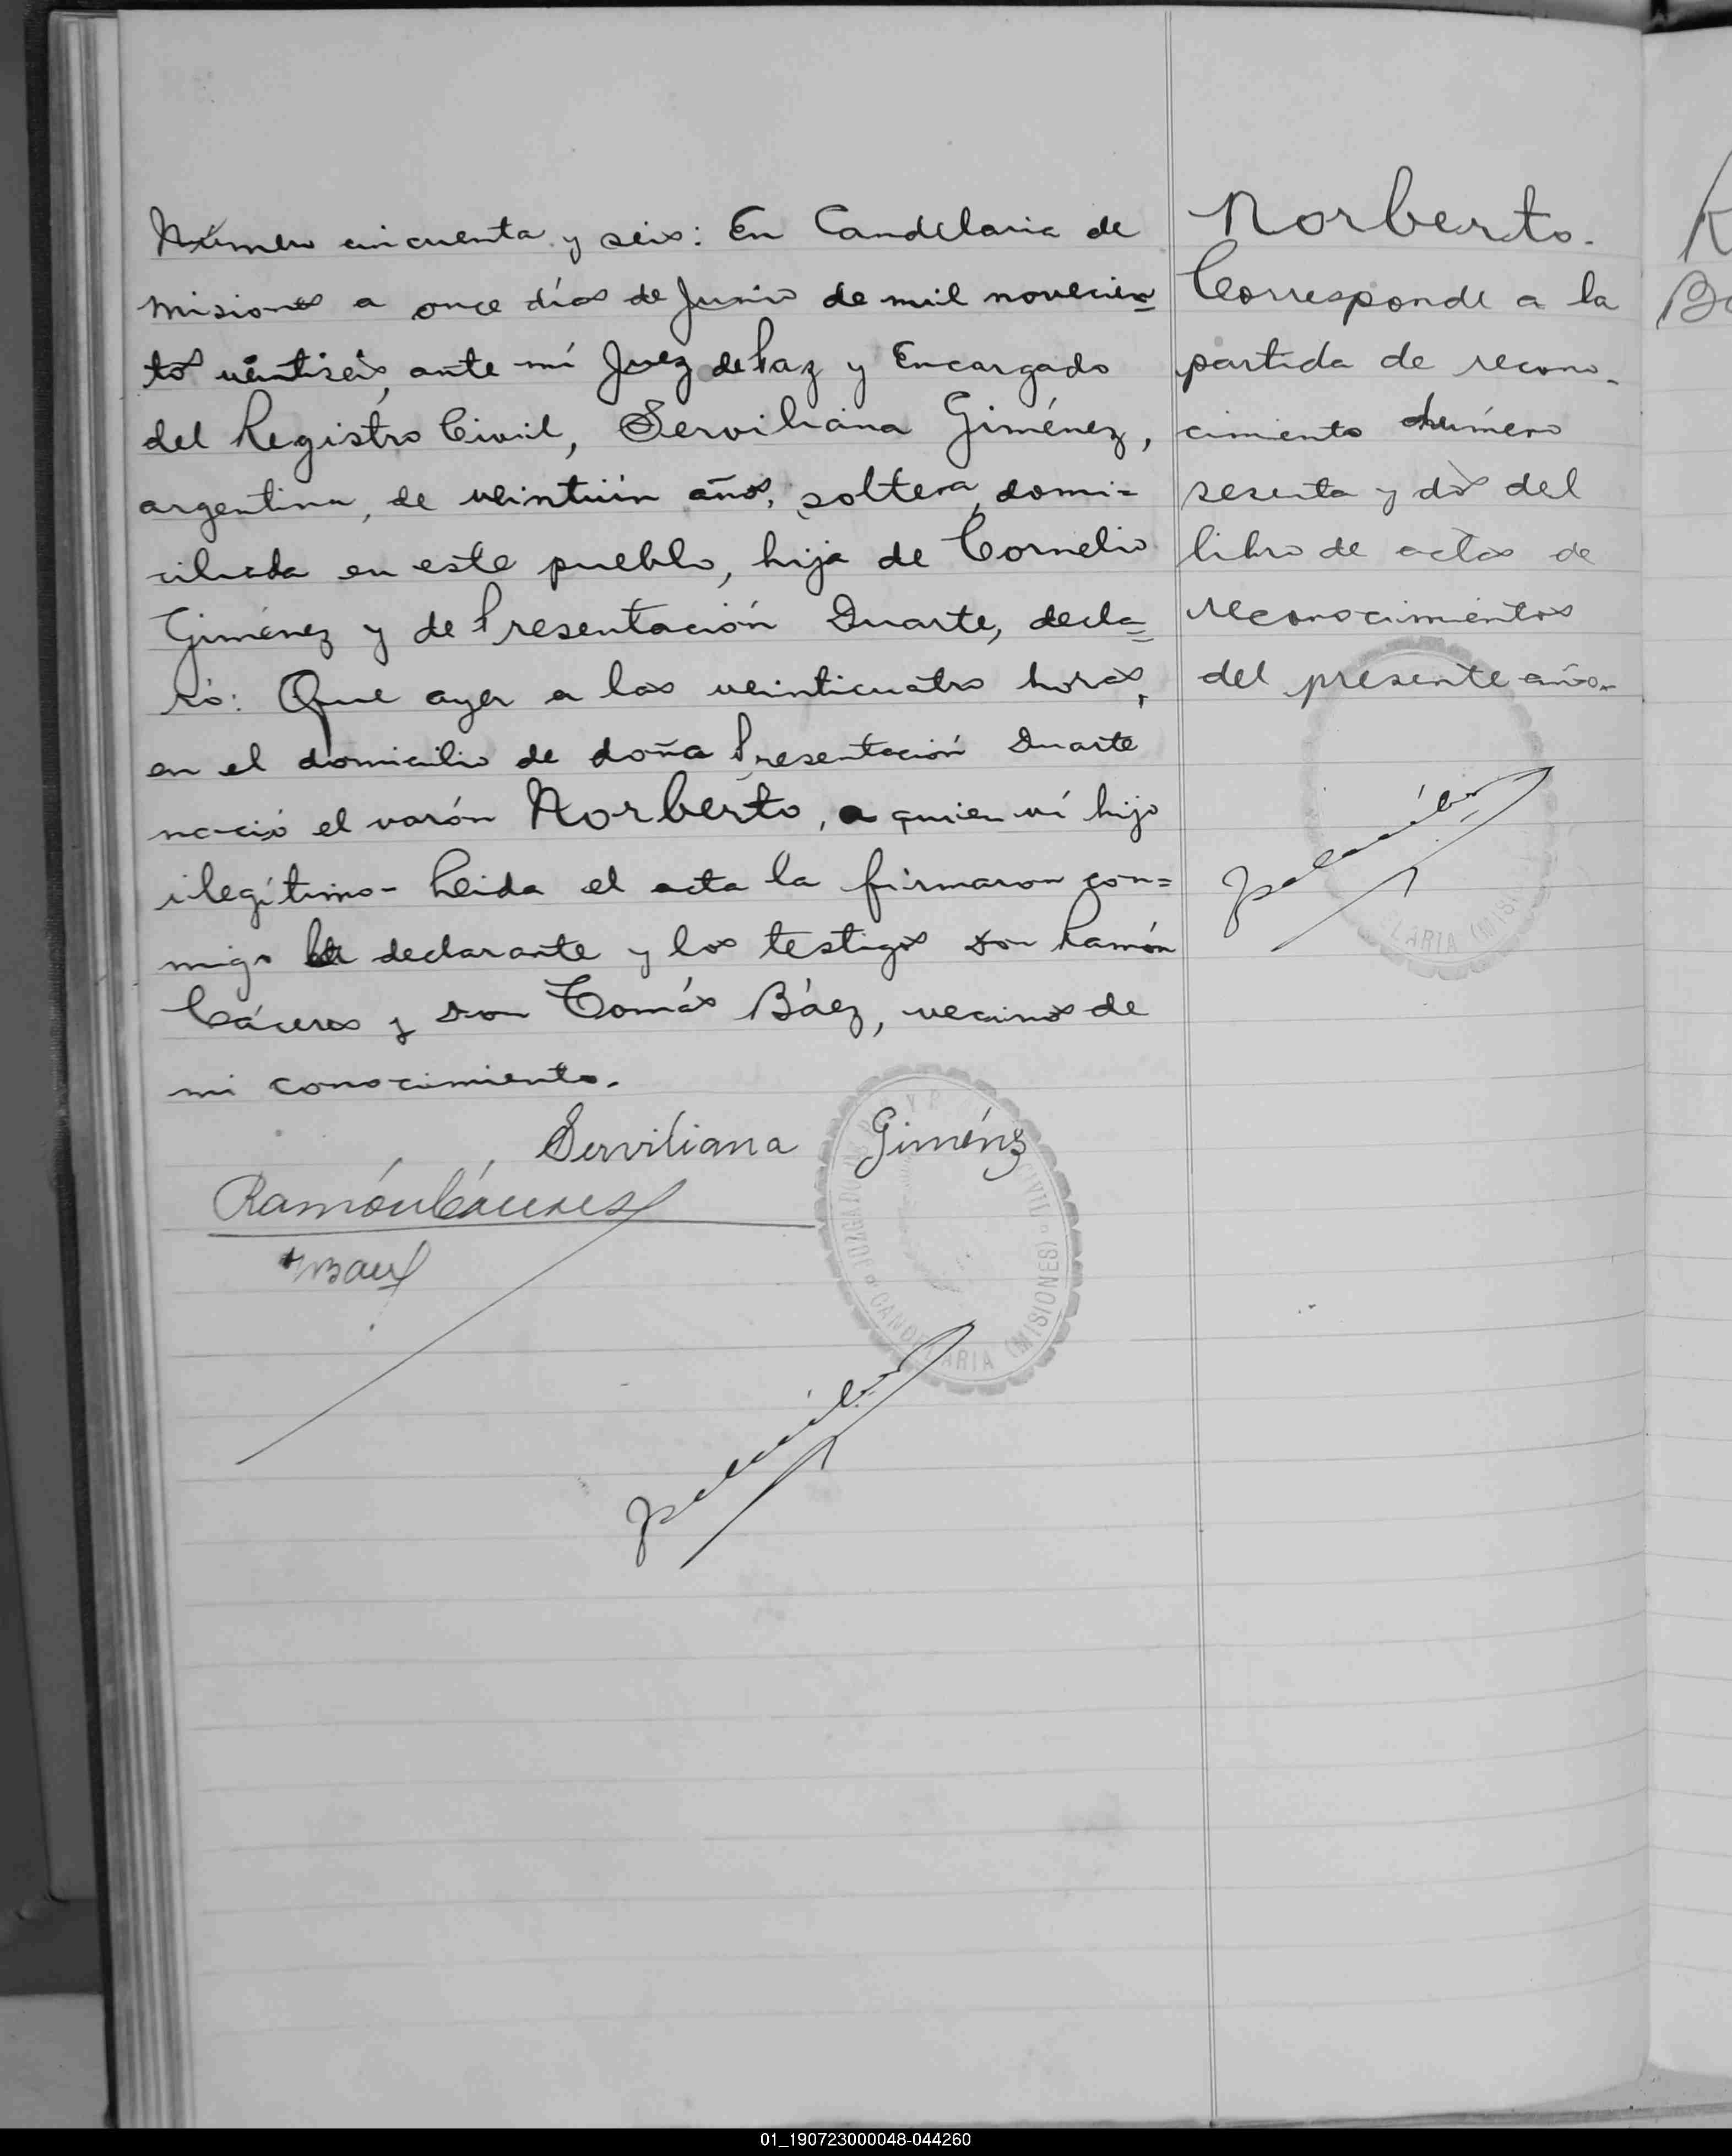 Número cincuenta y seis: En Candelaria de
Misiones a once días de Junio de mil novecien=
tos veintiseis, ante mí Juez de Paz y Encargado
del Registro Civil, Serviliana Giménez,
argentina, de veintiún años, soltera, domi=
ciliada en este pueblo, hija de Cornelio
Giménez y de Presentación Duarte, decla=
ró: Que ayer a las veinticuatro horas,
en el domicilio de doña Presentación Duarte
nació el varón Norberto, a quien ví hijo
ilegítimo- Leida el acta la firmaron con=
migo la declarante y los testigos don Ramón
Cáceres y don Tomás Báez, vecinos de
mi conocimiento.
Serviliana Giménz
Ramón Cáceres
TBaez
JUZGADO DE PAZ Y REG CIVIL
CANDELARIA (MISIONES)
Norberto.
Corresponde a la
partida de recono-
cimiento número
sesenta y dos del
libro de actas de
reconocimientos
del presente año.
ELARIA (MISI
K
B
01_190723000048-044260